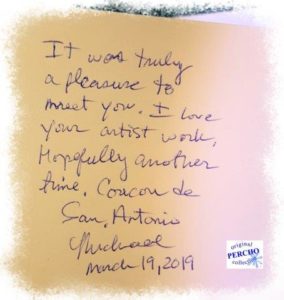 It was truly
a pleasure to
meet you. I love
your artist work,
Hopefully another
time. Coracon de
San, Antonio
Michael
March 19, 2019
original
PERCHO
collect